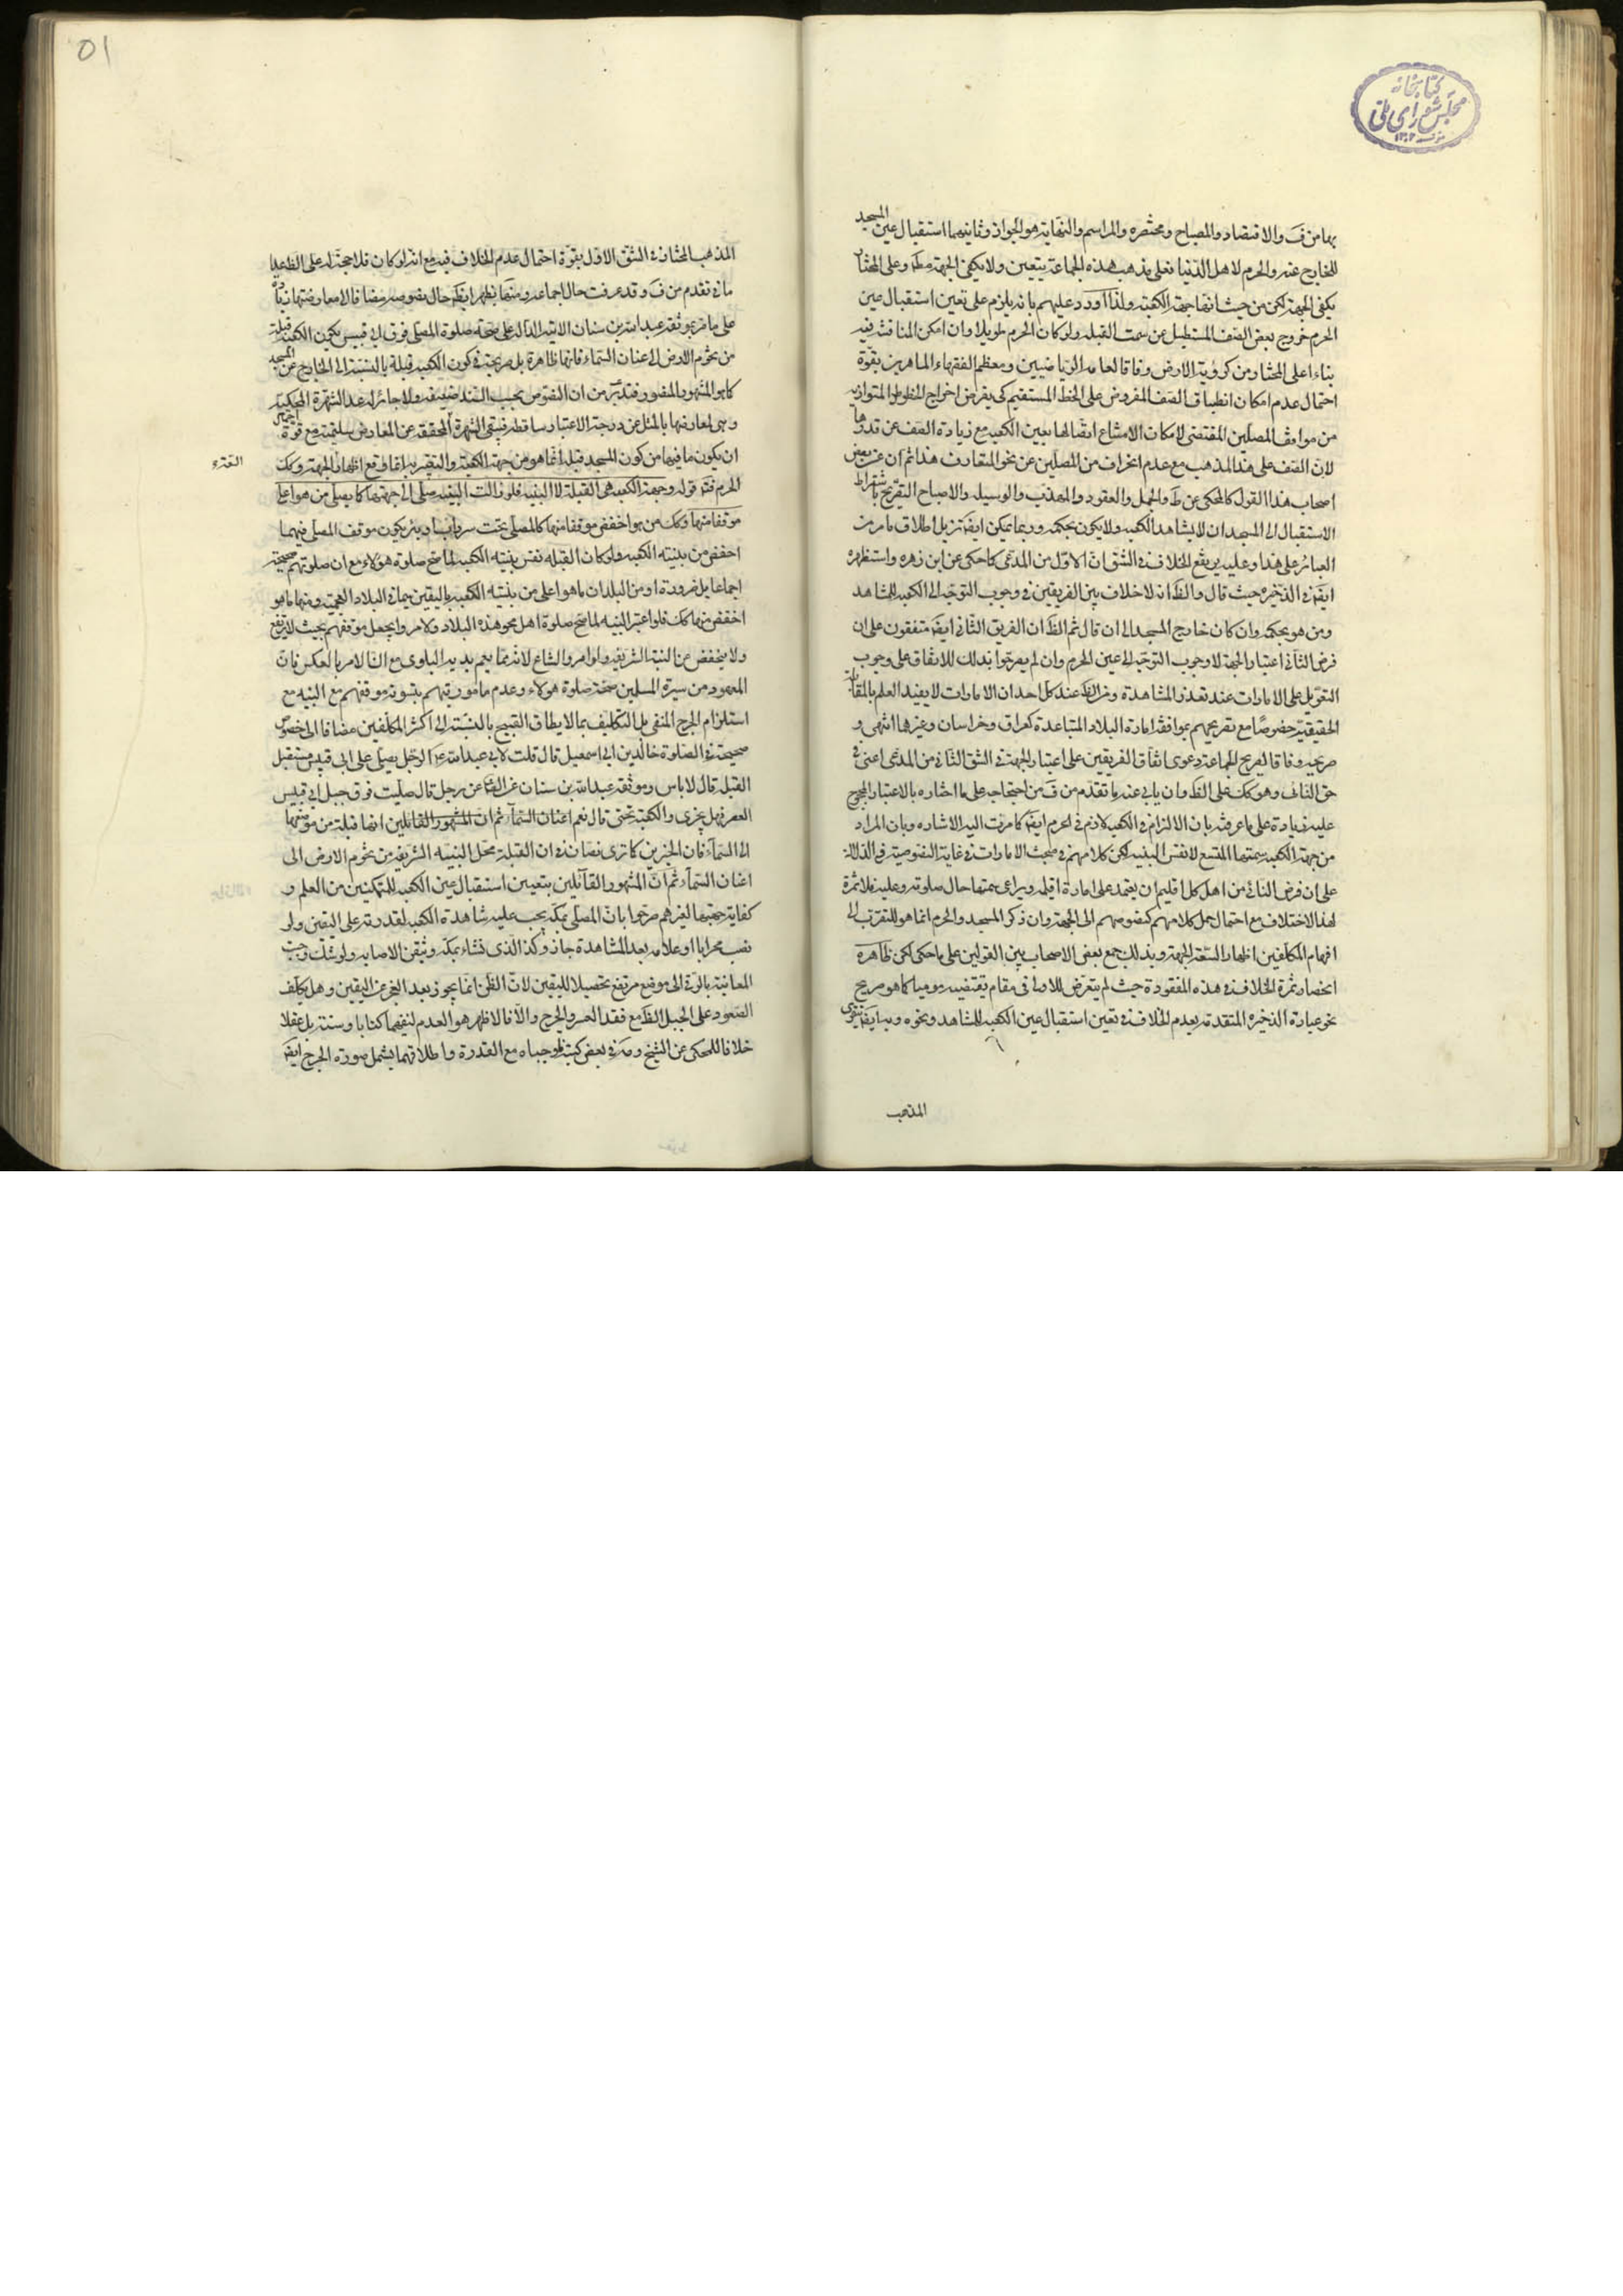 كتابخانه
مجلس شورای ملی
بها من ف والاقتصاد والمصباح ومختصره والمراسم والنهاية هو الجواز وثانيهما استقبال عين المسجد
للخارج عنه والحرم لاهل الدنيا فعلى مذهب هذه الجماعة يتعين ولا يكفي الجهة مط وعلى المختار
يكفي الجهة لكن من حيث انها جهة الكعبة ولذا اورد عليهم بانه يلزم على تعين استقبال عين
الحرم خروج بعض الصف المستطيل عن سمت القبلة ولو كان الحرم طويلا وان امكن المناقشة فيه
بناء على المختار من كروية الارض وفاقا لعامة الرياضيين ومعظم الفقهاء الماهرين بقوة
احتمال عدم امكان انطباق الصف المفروض على الخط المستقيم كي يفرض اخراج الخطوط المتوازية
من مواقف المصلين المقتضى لامكان الامتناع اتصالها بعين الكعبة مع زيادة الصف عن قدرها
لان الصف على هذا المذهب مع عدم انحراف من المصلين عن نحو المتعارف هذا ثم ان عن بعض
اصحاب هذا القول كالمحكى عن ط والجمل والعقود والمهذب والوسيلة والاصباح التصريح باشتراط
الاستقبال الى المسجد ان لا يشاهد الكعبة ولا يكون بحكمه وربما يمكن ايضا تنزيل اطلاق ما مر من
العبائر على هذا وعليه يرتفع الخلاف في الشق الاول من المدعى كما حكى عن ابن زهره واستظهره
ايضا في الذخيره حيث قال والظ انه لا خلاف بين الفريقين في وجوب التوجه الى الكعبة للمشاهد
ومن هو بحكمه وان كان خارج المسجد الى ان قال ثم الظ ان الفريق الثاني ايضا متفقون على ان
فرض النائي اعتبار الجهة لا وجوب التوجه الى عين الحرم وان لم يصرحوا بذلك للاتفاق على وجوب
التعويل على الامارات عند تعذر المشاهدة ومن الظ عند كل احد ان الامارات لا يفيد العلم بالمقابلة
الحقيقية خصوصا مع تصريحهم بموافقة امارة البلاد المتباعدة كعراق وخراسان وغيرها انتهى و
صريحه وفاقا لصريح الجماعة دعوى اتفاق الفريقين على اعتبار الجهة في الشق الثاني من المدعى اعنى في
حق النائي وهو كك على الظ وان يابى عنه ما تقدم من ف من احتجاجه على ما اختاره بالاعتبار المحجوج
عليه زيادة على ما عرفته بان الالزام في الكعبة لازم في الحرم ايضا كما مرت اليه الاشاره وبان المراد
من جهة الكعبة سمتها المتسع لا نفس البنية لكن كلامهم في مبحث الامارات في غاية النصوصية في الدلالة
على ان فرض النائي من اهل كل اقليم ان يعتمد على امارة اقليمه ويراعى سمتها حال صلوته وعليه فلا ثمرة
لهذا الاختلاف مع احتمال حمل كلامهم كنصوصهم الى الجهة وان ذكر المسجد والحرم انما هو للتقريب الى
افهام المكلفين اظهارا لسعة الجهة وبذلك جمع بعض الاصحاب بين القولين على ما حكى لكن ظاهره
انحصار ثمرة الخلاف في هذه المفقودة حيث لم يتعرض للاولى في مقام يقتضيه يوميا كما هو صريح
نحو عبارة الذخيره المتقدمة بعدم الخلاف في تعين استقبال عين الكعبة للمشاهد ونحوه وبه ايضا يتقوى
المذهب
٥١
المذهب المختار في الشق الاول بقوة احتمال عدم الخلاف فيه مع انه لو كان فلا حجة له على الظ عدا
ما في تقدم من ف وقد عرفت حال اجماعه ومنها يظهر ايضا حال نصوصه مضافا الى معارضتها زيادة
على ما مر بموثقة عبد الله بن سنان الاتية الدالة على صحة صلوة المصلى فوق ابي قبيس بكون الكعبة قبلة
من تخوم الارض الى عنان السماء فانها ظاهرة بل صريحة في كون الكعبة قبلة بالنسبة الى الخارج عن المسجد
كما هو المشهور المنصور فتدبر من ان النصوص بحسب السند ضعيفة ولا جابر له عدا الشهرة المحكية
وهي لمعارضتها بالمثل عن درجة الاعتبار ساقطة فتبقى الشهرة المحققة عن المعارض سليمة مع قوة احتمال
ان يكون ما فيها من كون المسجد قبلة انما هو من جهة الكعبة والتعبير به انما وقع اظهارا للجهة وكك
الحرم فته قوله وجهة الكعبة هي القبلة لا البنية فلو زالت البنية صلى الى جهتها كما يصلى من هو اعلى
موقفا منها وكك من هو اخفض موقفا منها كالمصلى تحت سرداب او بئر يكون موقف المصلى فيهما
اخفض من بنية الكعبة ولو كان القبلة نفس بنية الكعبة لما صح صلوة هؤلاء مع ان صلوتهم صحيحة
اجماعا بل ضرورة او من البلدان ما هو اعلى من بنية الكعبة باليقين سيما في البلاد العجمية ومنها ما هو
اخفض منها كك فلو اعتبر البنية لما صح صلوة اهل نحو هذه البلاد ولامر وا بجعل موقفهم بحيث لا يرتفع
ولا ينخفض عن البنية الشريفة واوامر والشاع لانه مما يعم بديه البلوى مع ان الامر بالعكس فان
المعهود من سيرة المسلمين صحة صلوة هؤلاء وعدم ماموريتهم بتسوية موقفهم مع البنية مع
استلزام الحرج المنفى بل التكليف بما لا يطاق القبيح بالنسبة الى اكثر المكلفين مضافا الى خصوص
صحيحة في الصلوة خالد بن ابي اسمعيل قال قلت لابي عبد الله ع الرجل يصلى على ابي قبيس مستقبل
القبلة قال لا باس وموثقة عبد الله بن سنان عن الصادق عن رجل قال صليت فوق جبل ابي قبيس
العصر فهل يجزى والكعبة تحتى قال نعم اعنان السماء ثم ان المشهور القائلين انها قبلة من موضعها
الى السماء فان الخبرين كما ترى نصان في ان القبلة محل البنية الشريفة من تخوم الارض الى
اعنان السماء ثم ان المشهور القائلين بتعيين استقبال عين الكعبة للمتمكنين من العلم و
كفاية جهتها لغيرهم صرحوا بان المصلى بمكة يجب عليه مشاهدة الكعبة لقدرته على اليقين ولو
نصب محرابا او علامة بعد المشاهدة جاز وكذا الذي نشاء بمكة وتيقن الاصابة ولو شك وجب
المعاينة بالرقى الى موضع مرتفع تحصيلا لليقين لان الظن انما يجوز بعد العجز عن اليقين وهل يكلف
الصعود على الجبل الظ مع فقد العسر والحرج والا فالاظهر هو العدم لنفيهما كتابا وسنة بل عقلا
خلافا للمحكى عن الشيخ ومه في بعض كتبه فاوجباه مع القدرة واطلاقهما يشمل صورة الحرج ايضا